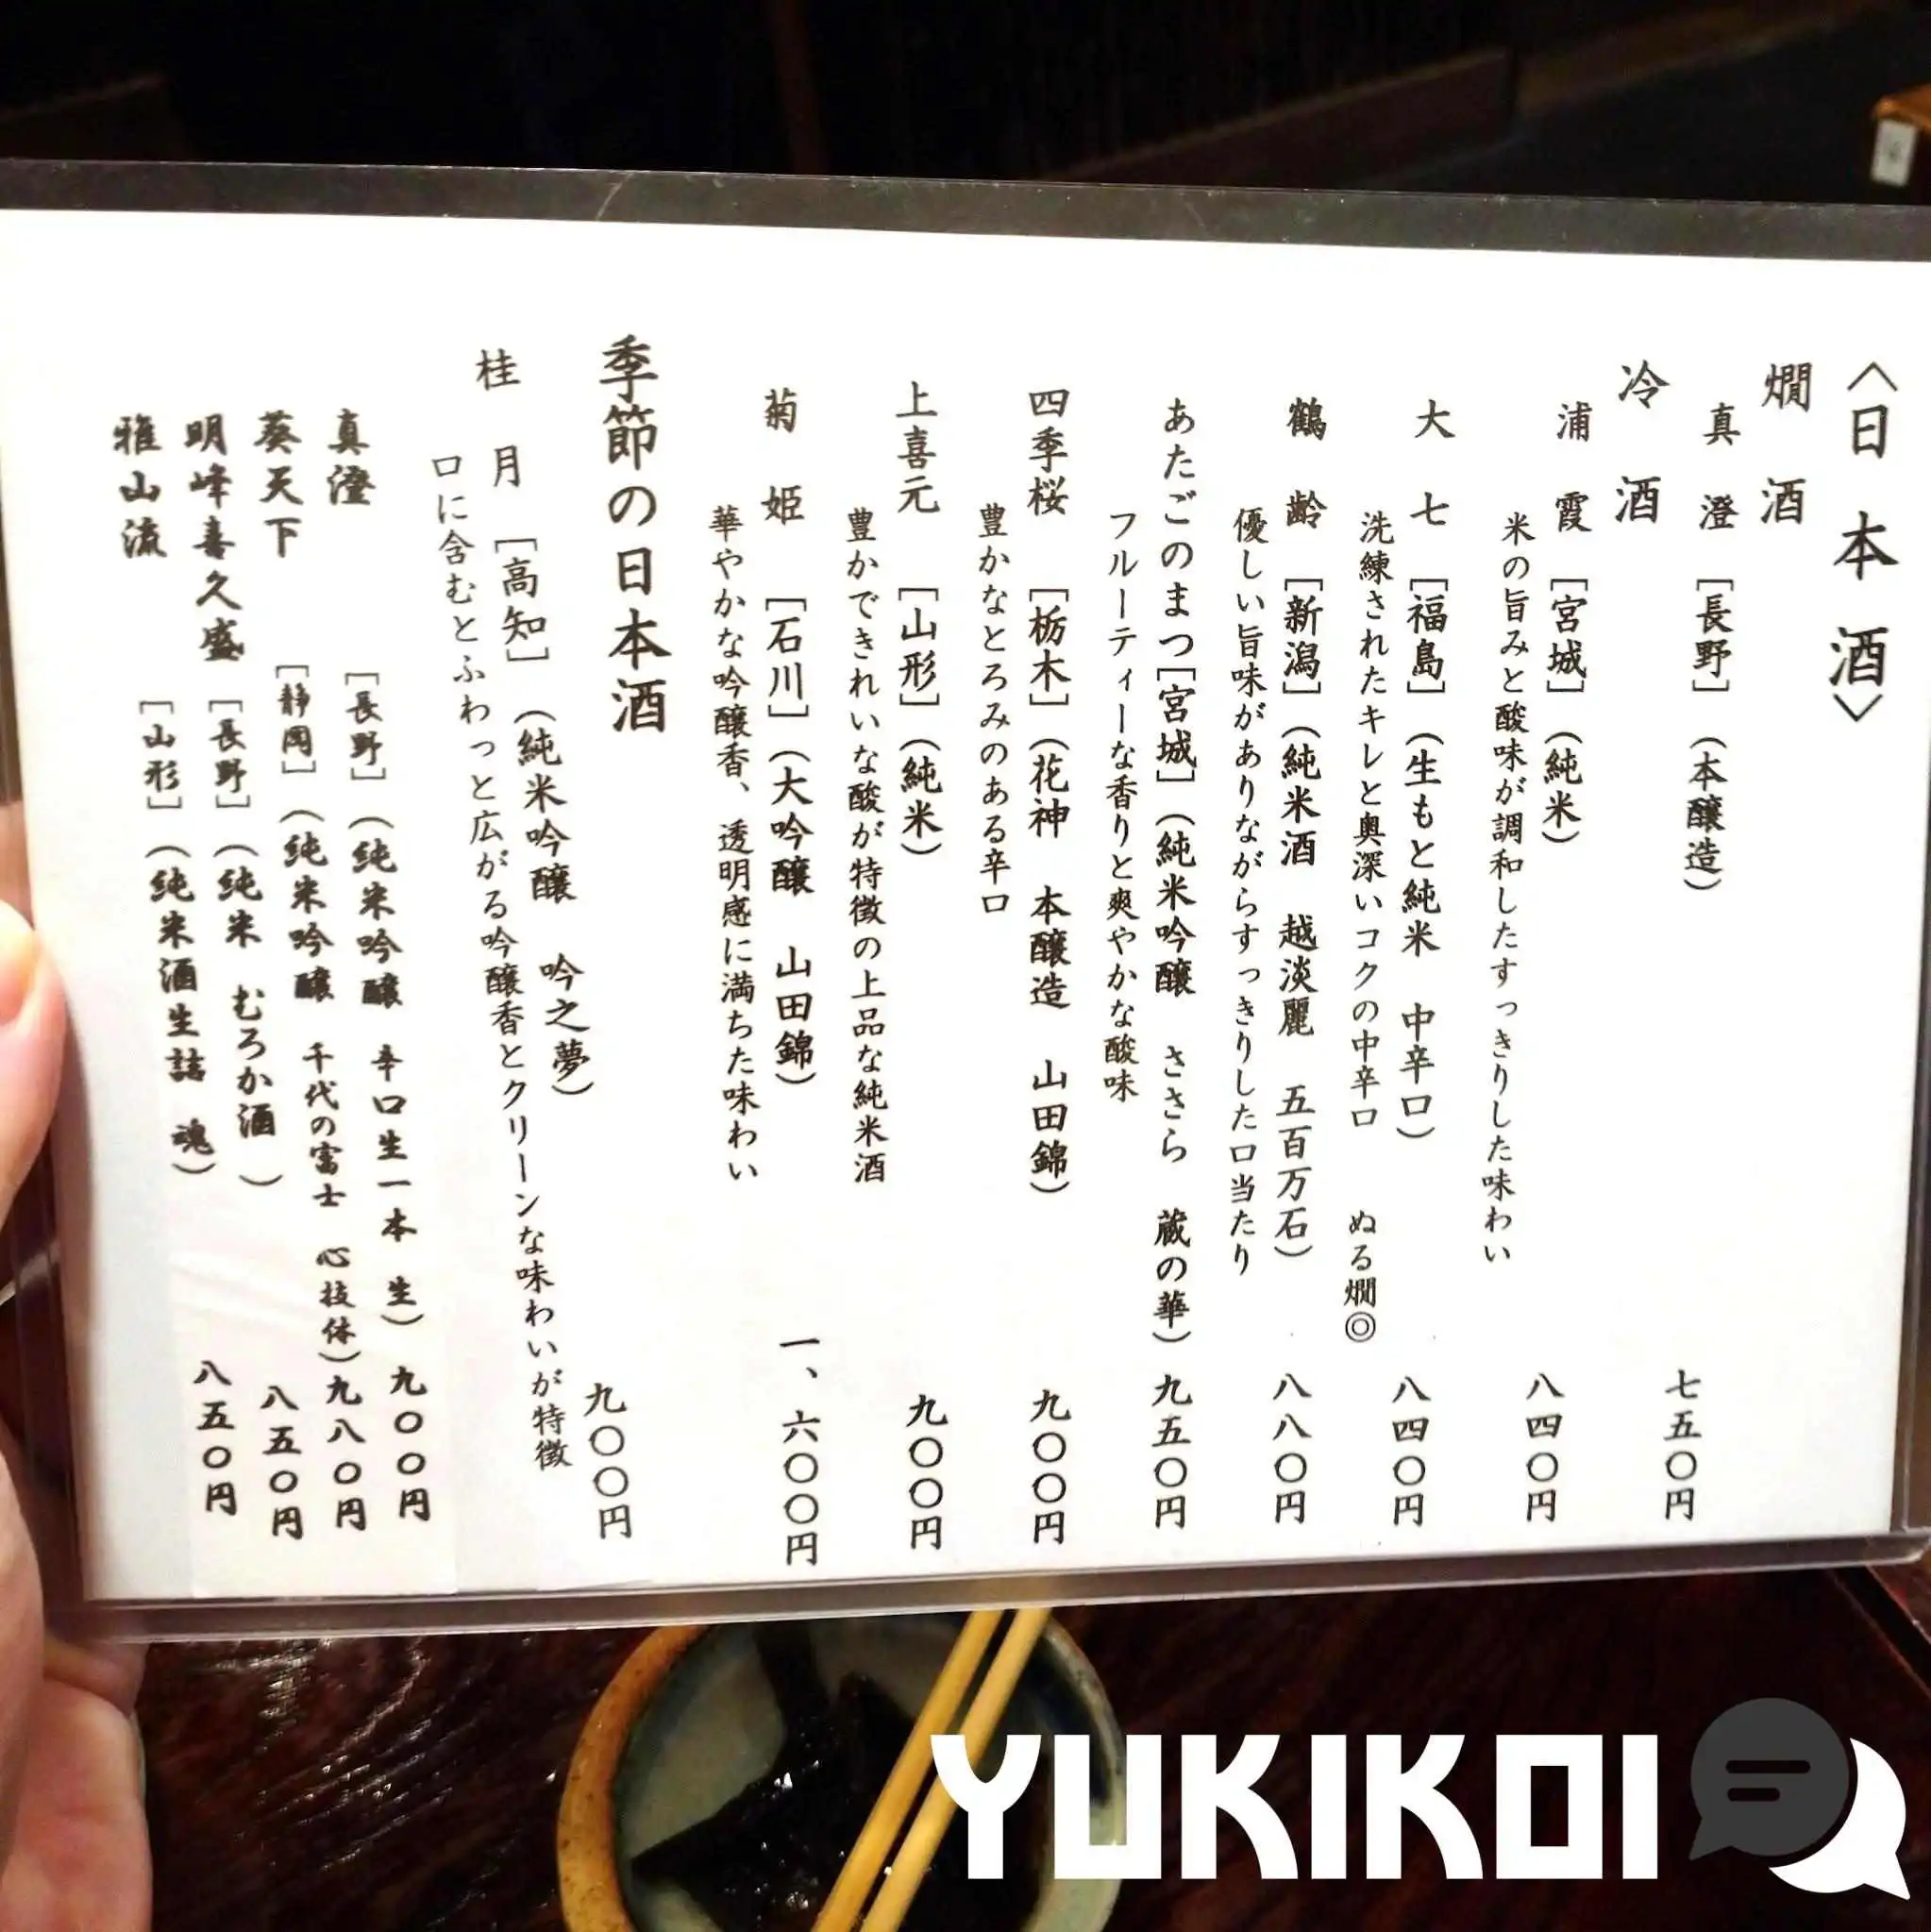 〈日本酒〉
燗酒
真澄 [長野] (本醸造) 七五〇円
冷酒
浦霞 [宮城] (純米) 八四〇円
米の旨みと酸味が調和したすっきりした味わい
大七 [福島] (生もと純米 中辛口) 八四〇円
洗練されたキレと奥深いコクの中辛口 ぬる燗◎
鶴齢 [新潟] (純米酒 越淡麗 五百万石) 八八〇円
優しい旨味がありながらすっきりした口当たり
あたごのまつ [宮城] (純米吟醸 ささら 蔵の華) 九五〇円
フルーティーな香りと爽やかな酸味
四季桜 [栃木] (花神 本醸造 山田錦) 九〇〇円
豊かなとろみのある辛口
上喜元 [山形] (純米) 九〇〇円
豊かできれいな酸が特徴の上品な純米酒
菊姫 [石川] (大吟醸 山田錦) 一、六〇〇円
華やかな吟醸香、透明感に満ちた味わい
季節の日本酒
桂月 [高知] (純米吟醸 吟之夢) 九〇〇円
口に含むとふわっと広がる吟醸香とクリーンな味わいが特徴
真澄 [長野] (純米吟醸 辛口生一本 生) 九〇〇円
葵天下 [静岡] (純米吟醸 千代の富士 心技体) 九八〇円
明峰喜久盛 [長野] (純米 むろか酒 ) 八五〇円
雅山流 [山形] (純米酒生詰 魂) 八五〇円
YUKIKOI